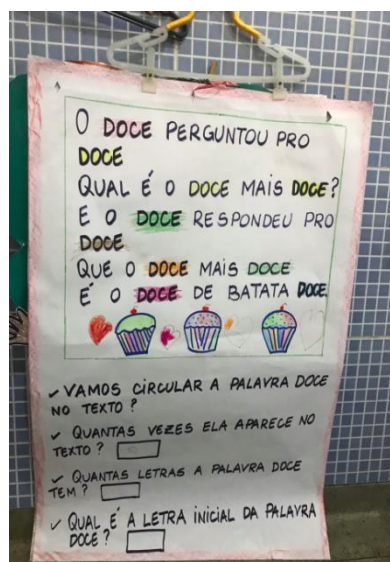 O DOCE PERGUNTOU PRO
DOCE
QUAL É O DOCE MAIS DOCE?
E O DOCE RESPONDEU PRO
DOCE
QUE O DOCE MAIS DOCE
É O DOCE DE BATATA DOCE.
✓ VAMOS CIRCULAR A PALAVRA DOCE
NO TEXTO?
✓ QUANTAS VEZES ELA APARECE NO
TEXTO?
✓ QUANTAS LETRAS A PALAVRA DOCE
TEM?
✓ QUAL É A LETRA INICIAL DA PALAVRA
DOCE?